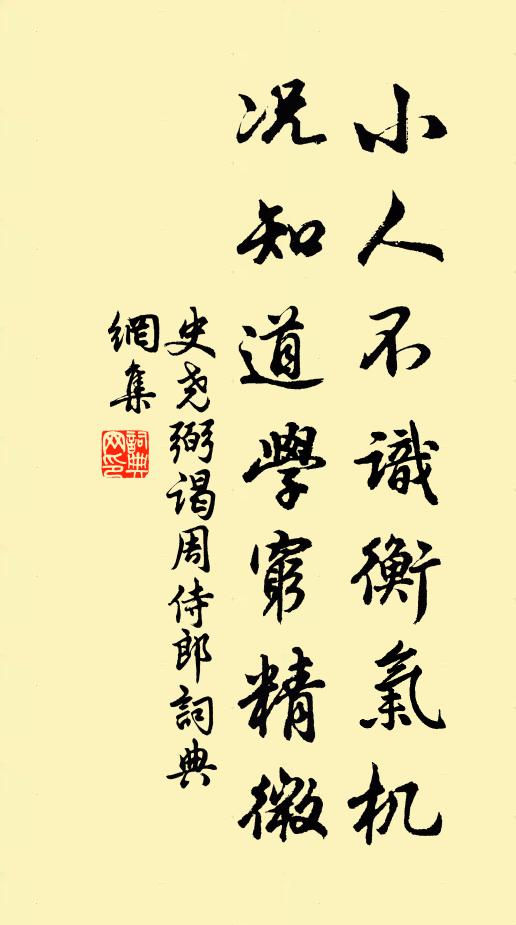 小人不識衡氣机
况知道學窮精微
史尧弼谒周侍郎詞典
網集
詞典
网印